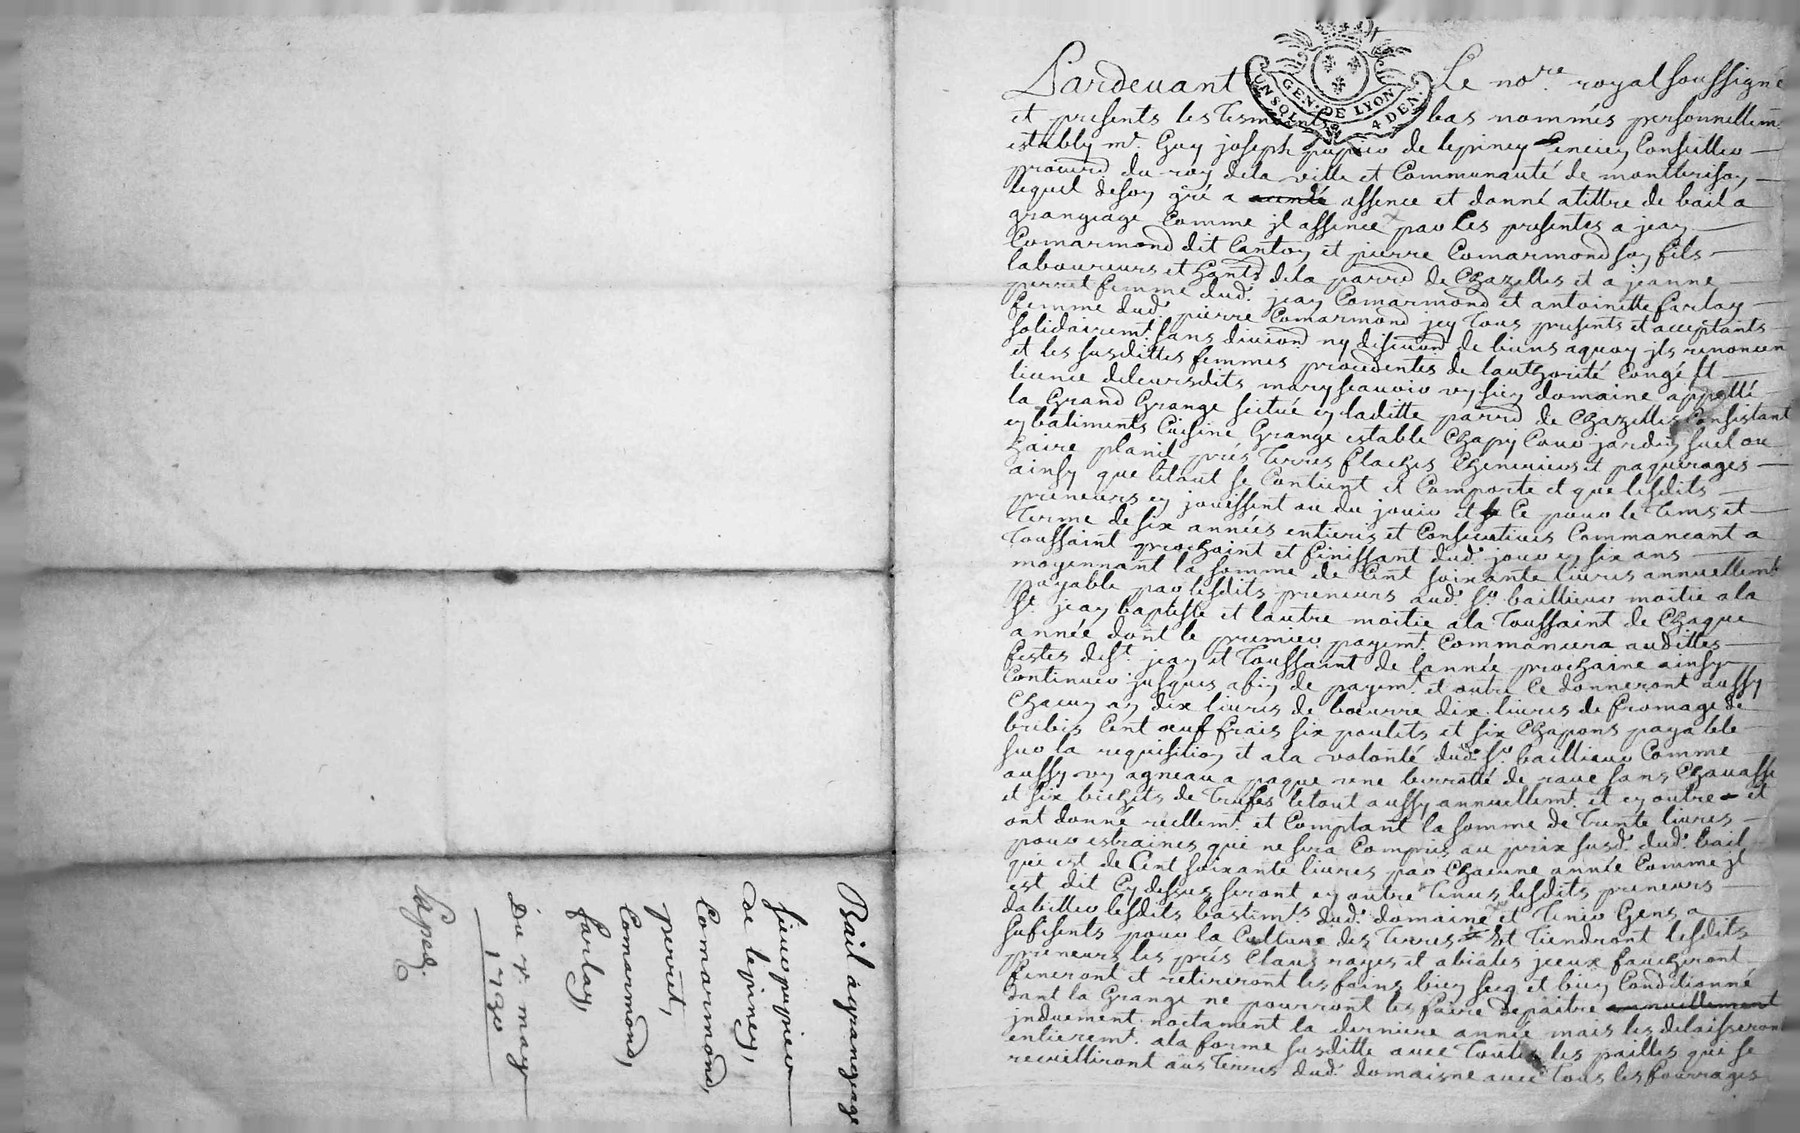 Pardeuant Le no.re royal soussigné
GEN. DE LYON
UN SOL 4 DEN.
et presents les tesmoins bas nommés personnellem.
estably m.r Guy joseph pupier de lepiney Conseiller
procurd du roy dela ville et Communauté de montbrison
lequel deson gré a assence et donné atittre de bail a
grangeage Comme jl assence par les presentes a jean
Comarmond dit Canton et pierre Comarmond son fils
laboureurs et hants dela parrd de Chazelles et a jeanne
perret femme dud. jean Comarmond et antoinette farlay
femme dud. pierre Comarmond jcy tous presents et acceptants
solidairemt. sans diuiond ny discuond de biens aquoy jls renoncen
et les susdittes femmes procedentes de lauthorité Congé et
licence deleursdits mary scauoir vn sien domaine appellé
la Grand Grange scitué en laditte parrd de Chazelles Consistant
en batiments Cuisine Grange estable Chapy Cour jardin
haire planil prés terres flaches Cheneuiers et paquerages
ainsy que letout se Contient et Comporte et que lesdits
preneurs en jouissent ou du jouir et Ce pour le tems et
terme de six années entieres et Consecutiues Commancant a
toussaint prochaint et finissant dud. jour en six ans
moyennant la somme de Cent soixante liures annuellemt.
payable par lesdits preneurs aud. sr. bailleur moitie ala
st. jean baptiste et lautre moitie ala toussaint de Chaque
année dont le premier payemt. Commancera audittes
festes dest. jean et toussaint de lannée prochaine ainsy
Continuer jusques afin de payemt. et outre Ce donneront aussy
Chacun an dix liures de beurre dix liures de fromage de
brebis Cent oeuf frais six poulets et six Chapons payable
sur la requisition et ala volonté dud. sr. bailleur Comme
aussy vn agneau a paque une berrotté de raue sans Chauasse
et six bichets de trufes letout aussy annuellemt. et en outre et
ont donné reellemt. et Comptant la somme de trente liures
pour estraines que ne sera Compris au prix susd. dud. bail
qui est de Cent soixante liures par Chacune année Comme jl
est dit Cy dessus seront en outre tenus lesdits preneurs
dabitter lesdits bastimts dud. domaine et tenir Gens a
sufisents pour la Culture des terres et tiendront lesdits
preneurs les prés Claus rayes et abiales jceux faucheront
feneront et retireront les foins bien secq et bien Conditionné
dant la Grange ne pourront les faire depaitre annuellement
jnduement noctament la derniere année mais les delaisseront
entieremt. ala forme susditte auec toutes les pailles qui se
recuilliront aus terres dud. domaisne auec tous les fourrages
Bail agrangeage
sieur pupier
de lepiney,
Comarmond,
perret,
Comarmond,
farlay,
Du may
1730